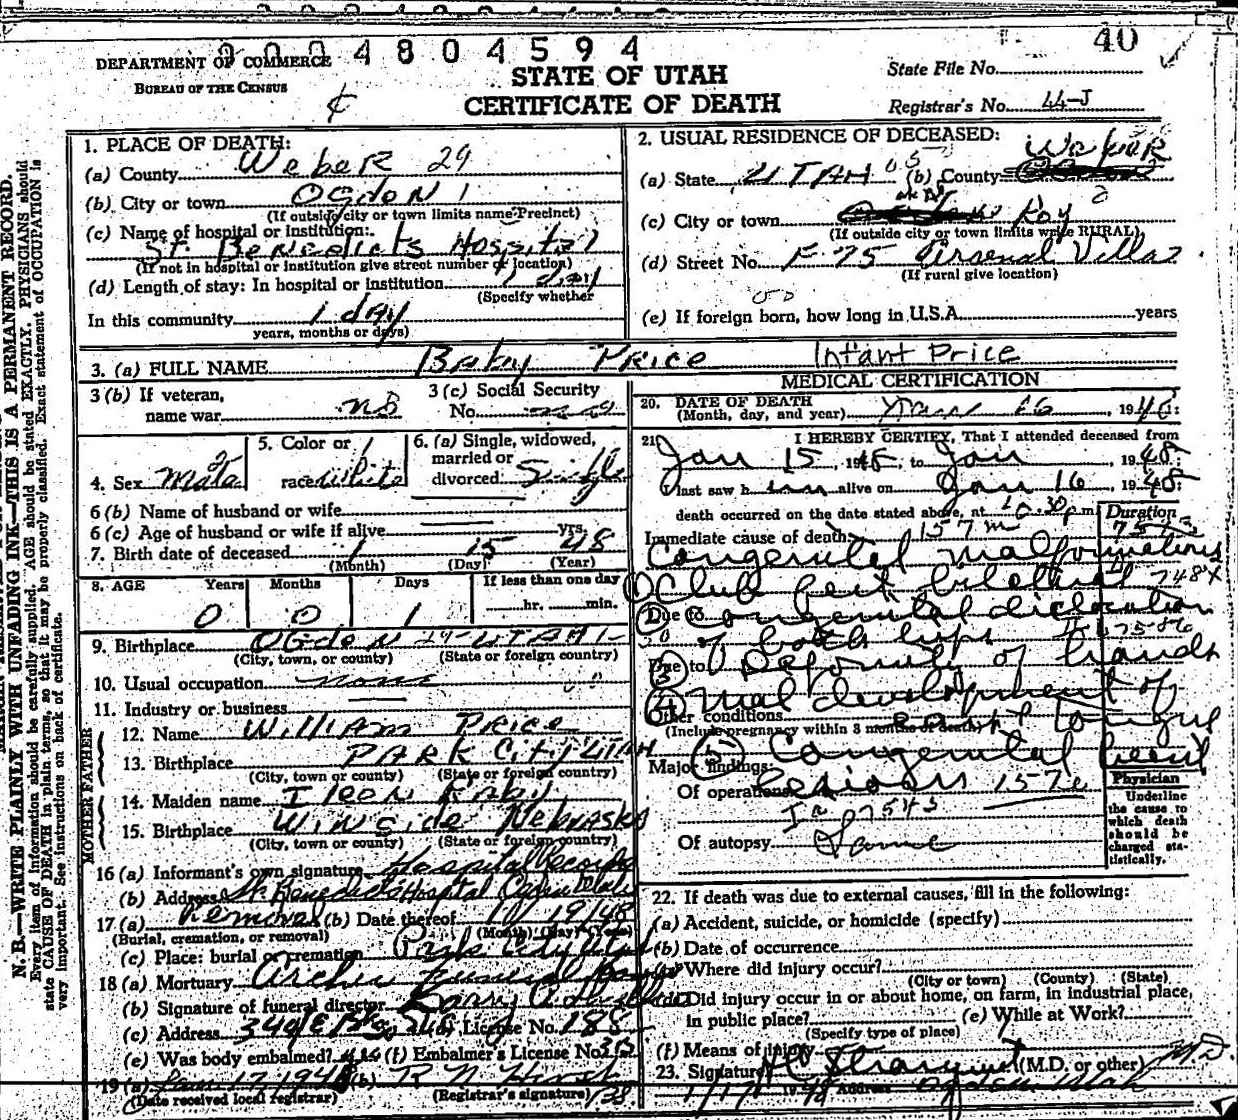 0 0 0 4 8 0 4 5 9 4
40
DEPARTMENT OF COMMERCE
BUREAU OF THE CENSUS
STATE OF UTAH
CERTIFICATE OF DEATH
State File No.
Registrar's No. 44-J
N. B.—WRITE PLAINLY WITH UNFADING INK—THIS IS A PERMANENT RECORD.
Every item of information should be carefully supplied. AGE should be stated EXACTLY. PHYSICIANS should
state CAUSE OF DEATH in plain terms, so that it may be properly classified. Exact statement of OCCUPATION is
very important. See instructions on back of certificate.
1. PLACE OF DEATH:
(a) County WEBER 29
(b) City or town OGDEN 1
(If outside city or town limits name Precinct)
(c) Name of hospital or institution:
St. Benedicts Hospital
(If not in hospital or institution give street number or location)
(d) Length of stay: In hospital or institution 1 day
(Specify whether
In this community 1 day
years, months or days)
2. USUAL RESIDENCE OF DECEASED:
(a) State UTAH (b) County Weber
(c) City or town Roy
(If outside city or town limits write RURAL)
(d) Street No. F-75 Arsenal Villa
(If rural give location)
(e) If foreign born, how long in U.S.A. years
3. (a) FULL NAME Baby Price Infant Price
3 (b) If veteran,
name war no
3 (c) Social Security
No.
4. Sex Male
5. Color or
race White
6. (a) Single, widowed,
married or
divorced Single
6 (b) Name of husband or wife
6 (c) Age of husband or wife if alive yrs.
7. Birth date of deceased 1 15 48
(Month) (Day) (Year)
8. AGE Years Months Days If less than one day
0 0 1 hr. min.
9. Birthplace OGDEN 29-UTAH 1
(City, town, or county) (State or foreign country)
10. Usual occupation none
11. Industry or business
FATHER
12. Name William Price
13. Birthplace PARK City UTAH
(City, town or county) (State or foreign country)
MOTHER
14. Maiden name Ileen
15. Birthplace Winside Nebraska
(City, town or county) (State or foreign country)
16 (a) Informant's own signature Hospital Records
(b) Address St. Benedicts Hospital
17 (a) Removal (b) Date thereof 1/19/48
(Burial, cremation, or removal) (Month) (Day) (Year)
(c) Place: burial or cremation Park City Utah
18 (a) Mortuary Archer Funeral
(b) Signature of funeral director Larry
(c) Address License No. 185
(e) Was body embalmed? yes (f) Embalmer's License No.
19 (a) Jan 17 1948 (b) R N Hirst
(Date received local registrar) (Registrar's signature)
MEDICAL CERTIFICATION
20. DATE OF DEATH
(Month, day, and year) Jan 16, 1948
21. I HEREBY CERTIFY, That I attended deceased from
Jan 15, 1948, to Jan 1948
I last saw him alive on Jan 16 1948
death occurred on the date stated above, at 10:30 p m
Duration
Immediate cause of death 157m
Congenital malformations
(1) Club feet bilateral 748X
Due to (2) Congenital dislocation
of both hips
Due to (3) Deformity of hands
(4) Mal development of
Other conditions tongue
(Include pregnancy within 3 months of death)
(5) Congenital heart
Major findings:
Of operations lesions 157e
Of autopsy Same
Physician
Underline
the cause to
which death
should be
charged sta-
tistically.
22. If death was due to external causes, fill in the following:
(a) Accident, suicide, or homicide (specify)
(b) Date of occurrence
Where did injury occur?
(City or town) (County) (State)
Did injury occur in or about home, on farm, in industrial place,
in public place? (e) While at Work?
(Specify type of place)
(f) Means of injury
23. Signature (M.D. or other) MD
1/17/1948 Address Ogden Utah